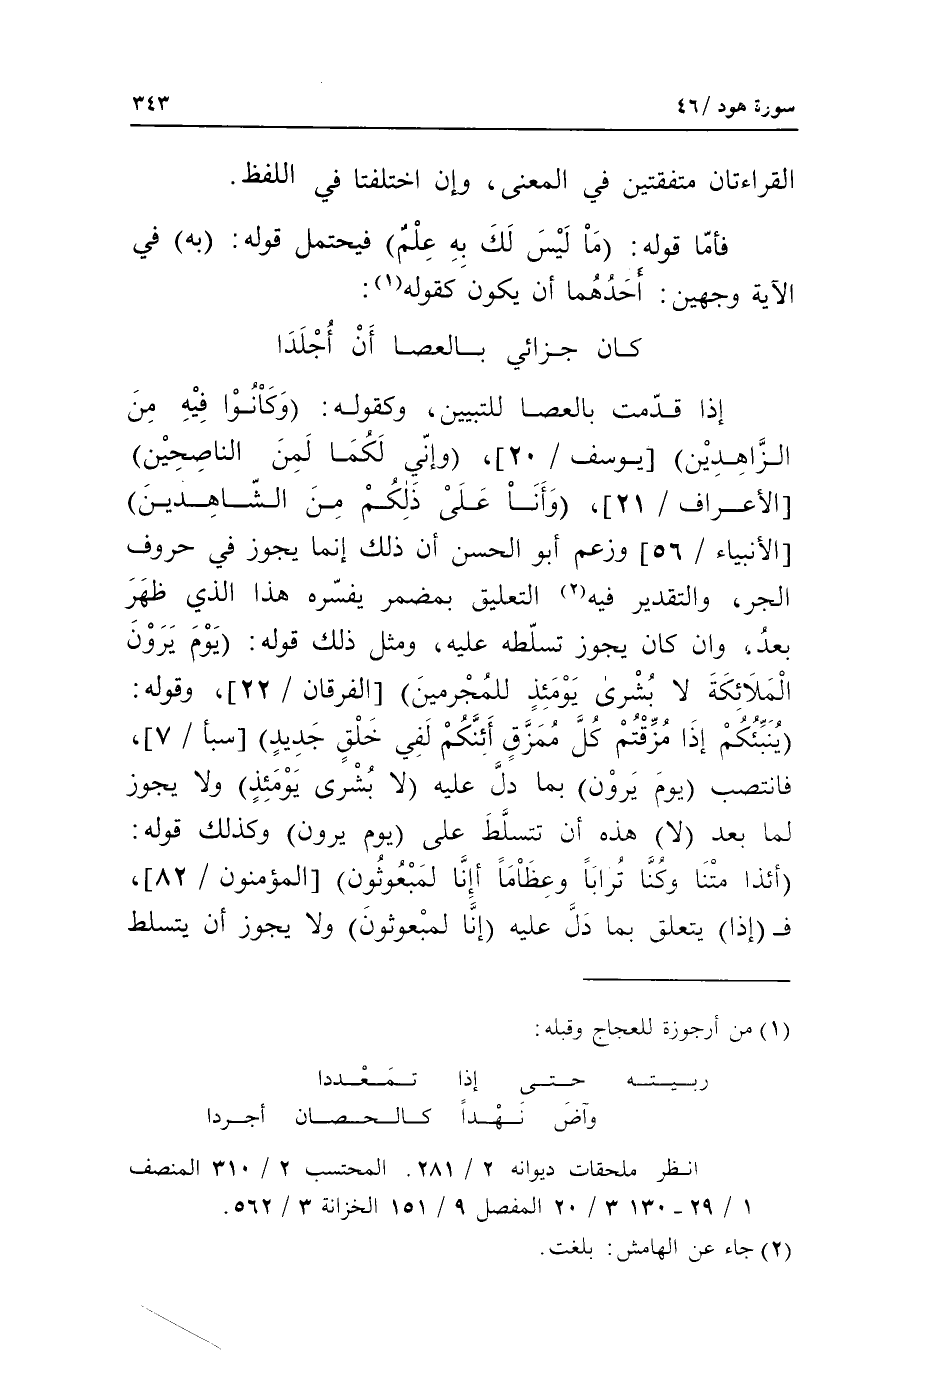 سورة هود /٤٦ ٣٤٣
القراءتان متفقتين في المعنى، وإن اختلفتا في اللفظ.
فأمّا قوله: (مَاْ لَيْسَ لَكَ بِهِ عِلْمٌ) فيحتمل قوله: (به) في
الآية وجهين: أَحَدُهُما أن يكون كقوله(١):
كـان جـزائي بـالعصـا أَنْ أُجْلَدَا
إذا قـدّمت بالعصـا للتبيين، وكقولـه: (وَكَاْنُوْا فِيْهِ مِنَ
الـزَّاهِـدِيْن) [يـوسف / ٢٠]، (وإنّي لَكُمَـا لَمِنَ الناصِحِيْن)
[الأعـراف / ٢١]، (وَأَنَـاْ عَـلَىْ ذَلِكُـمْ مِـنَ الـشَّـاهِـديـنَ)
[الأنبياء / ٥٦] وزعم أبو الحسن أن ذلك إنما يجوز في حروف
الجر، والتقدير فيه(٢) التعليق بمضمر يفسّره هذا الذي ظهَرَ
بعدُ، وان كان يجوز تسلّطه عليه، ومثل ذلك قوله: (يَوْمَ يَرَوْنَ
الْمَلَائِكَةَ لا بُشْرىٰ يَوْمَئِذٍ للمُجْرمينَ) [الفرقان / ٢٢]، وقوله:
(يُنَبِّئُكُمْ إذَا مُزِّقْتُمْ كُلَّ مُمَزَّقٍ أَئِنَّكُمْ لَفِي خَلْقٍ جَديدٍ) [سبأ / ٧]،
فانتصب (يومَ يَروْن) بما دلَّ عليه (لا بُشْرى يَوْمَئِذٍ) ولا يجوز
لما بعد (لا) هذه أن تتسلَّطَ على (يوم يرون) وكذلك قوله:
(أئذا مِتْنَا وكُنَّا تُراباً وعِظَاْمَاً أإنَّا لمَبْعُوثُون) [المؤمنون / ٨٢]،
فـ (إذا) يتعلق بما دَلَّ عليه (إنَّا لمبْعوثونَ) ولا يجوز أن يتسلط
(١) من أرجوزة للعجاج وقبله:
ربـيـتـه حـتـى إذا تـمَـعْـددا
وآضَ نَـهْـداً كـالـحـصـان أجـردا
انـظر ملحقات ديوانه ٢ / ٢٨١. المحتسب ٢ / ٣١٠ المنصف
١ / ٢٩ ـ ١٣٠ ٣ / ٢٠ المفصل ٩ / ١٥١ الخزانة ٣ / ٥٦٢.
(٢) جاء عن الهامش: بلغت.